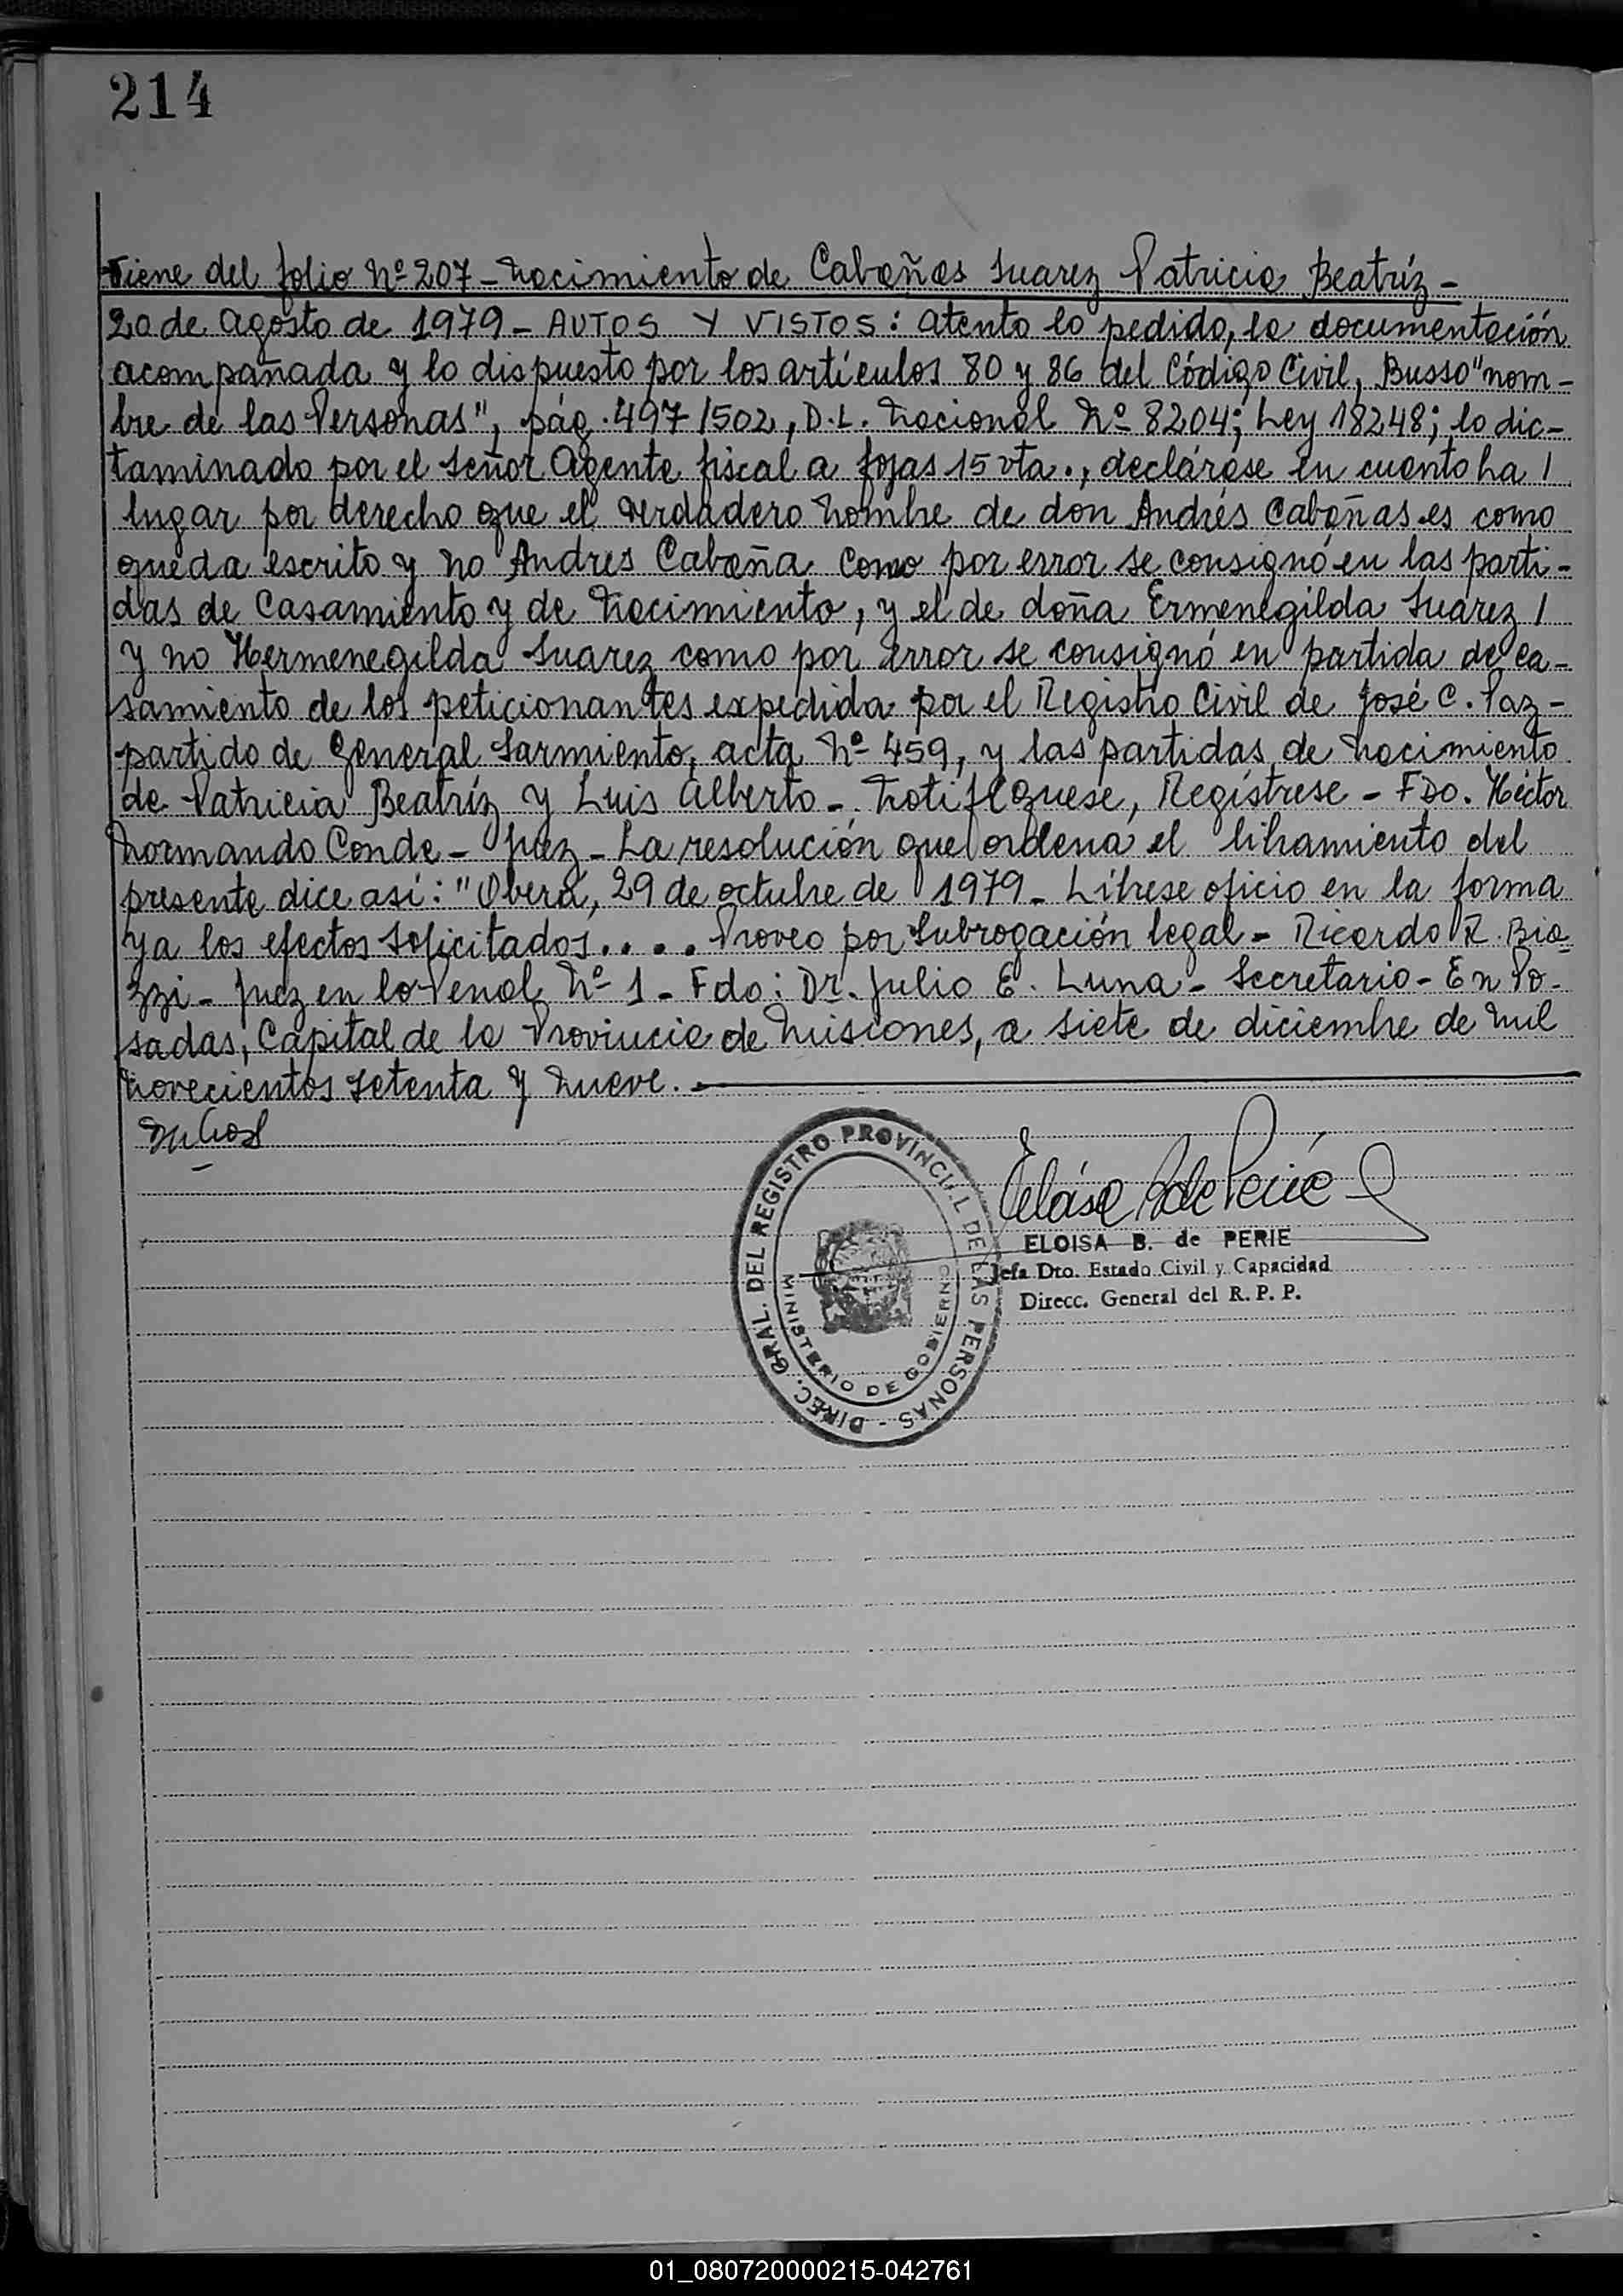 214
Viene del folio Nº 207 - Nacimiento de Cabañas Suarez Patricia Beatríz -
20 de Agosto de 1979 - AUTOS Y VISTOS: Atento lo pedido, la documentación
acompañada y lo dispuesto por los artículos 80 y 86 del Código Civil, Busso "nom-
bre de las Personas", pág. 497/502, D.L. Nacional Nº 8204; Ley 18248; lo dic-
taminado por el Señor Agente fiscal a fojas 15 vta., declárase en cuanto ha /
lugar por derecho que el verdadero nombre de don Andrés Cabañas es como
queda escrito y no Andres Cabaña como por error se consignó en las parti-
das de Casamiento y de Nacimiento, y el de doña Ermenegilda Suarez /
y no Hermenegilda Suarez como por error se consignó en partida de ca-
samiento de los peticionantes expedida por el Registro Civil de José C. Paz -
partido de General Sarmiento, acta Nº 459, y las partidas de Nacimiento
de Patricia Beatríz y Luis Alberto - Notifíquese, Regístrese - FDO. Héctor
Normando Conde - Juez - La resolución que ordena el libramiento del
presente dice así: "Oberá, 29 de octubre de 1979 - Líbrese oficio en la forma
y a los efectos solicitados.... Proveo por Subrogación legal - Ricardo R. Bia
zzi - Juez en lo Penal Nº 1 - Fdo: Dr. Julio E. Luna - Secretario - En Po-
sadas, Capital de la Provincia de Misiones, a siete de diciembre de mil
novecientos setenta y nueve.
DIREC. GRAL. DEL REGISTRO PROVINCIAL DE LAS PERSONAS -
MINISTERIO DE GOBIERNO
ELOISA B. de PERIE
Jefa Dto. Estado Civil y Capacidad
Direcc. General del R. P. P.
01_080720000215-042761